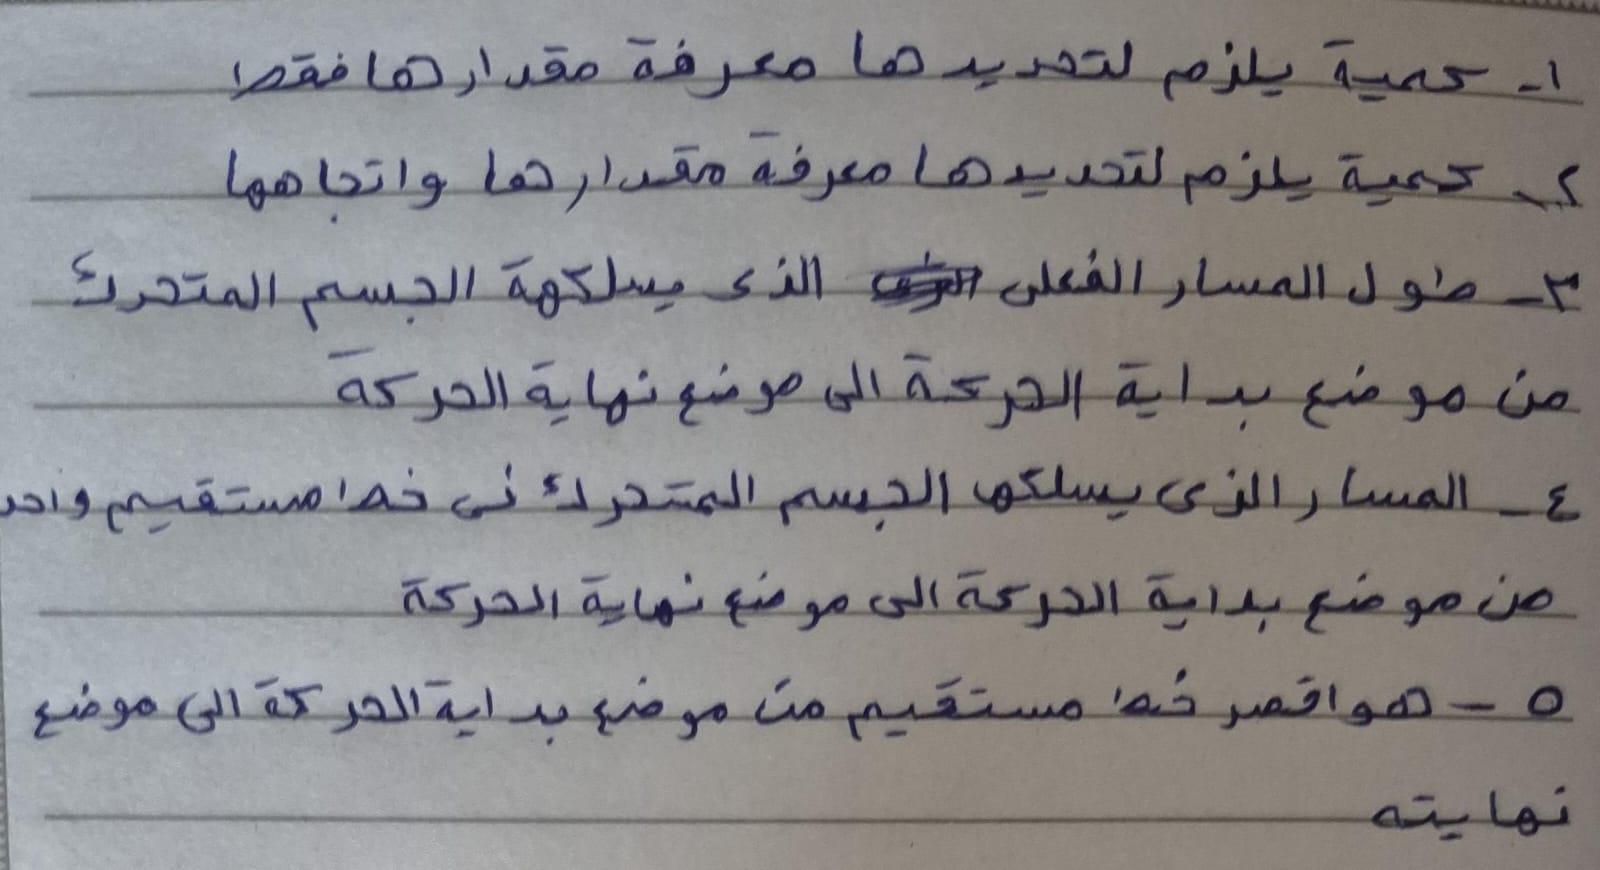 ١- كمية يلزم لتحديدها معرفة مقدارها فقط
٢- كمية يلزم لتحديدها معرفة مقدارها واتجاهها
٣- طول المسار الفعلى الذى يسلكهة الجسم المتحرك
من موضع بداية الحركة الى موضع نهاية الحركة
٤- المسار الذى يسلكها الجسم المتحرك فى خط مستقيم واحد
من موضع بداية الحركة الى موضع نهاية الحركة
٥- هو اقصر خط مستقيم من موضع بداية الحركة الى موضع
نهايته